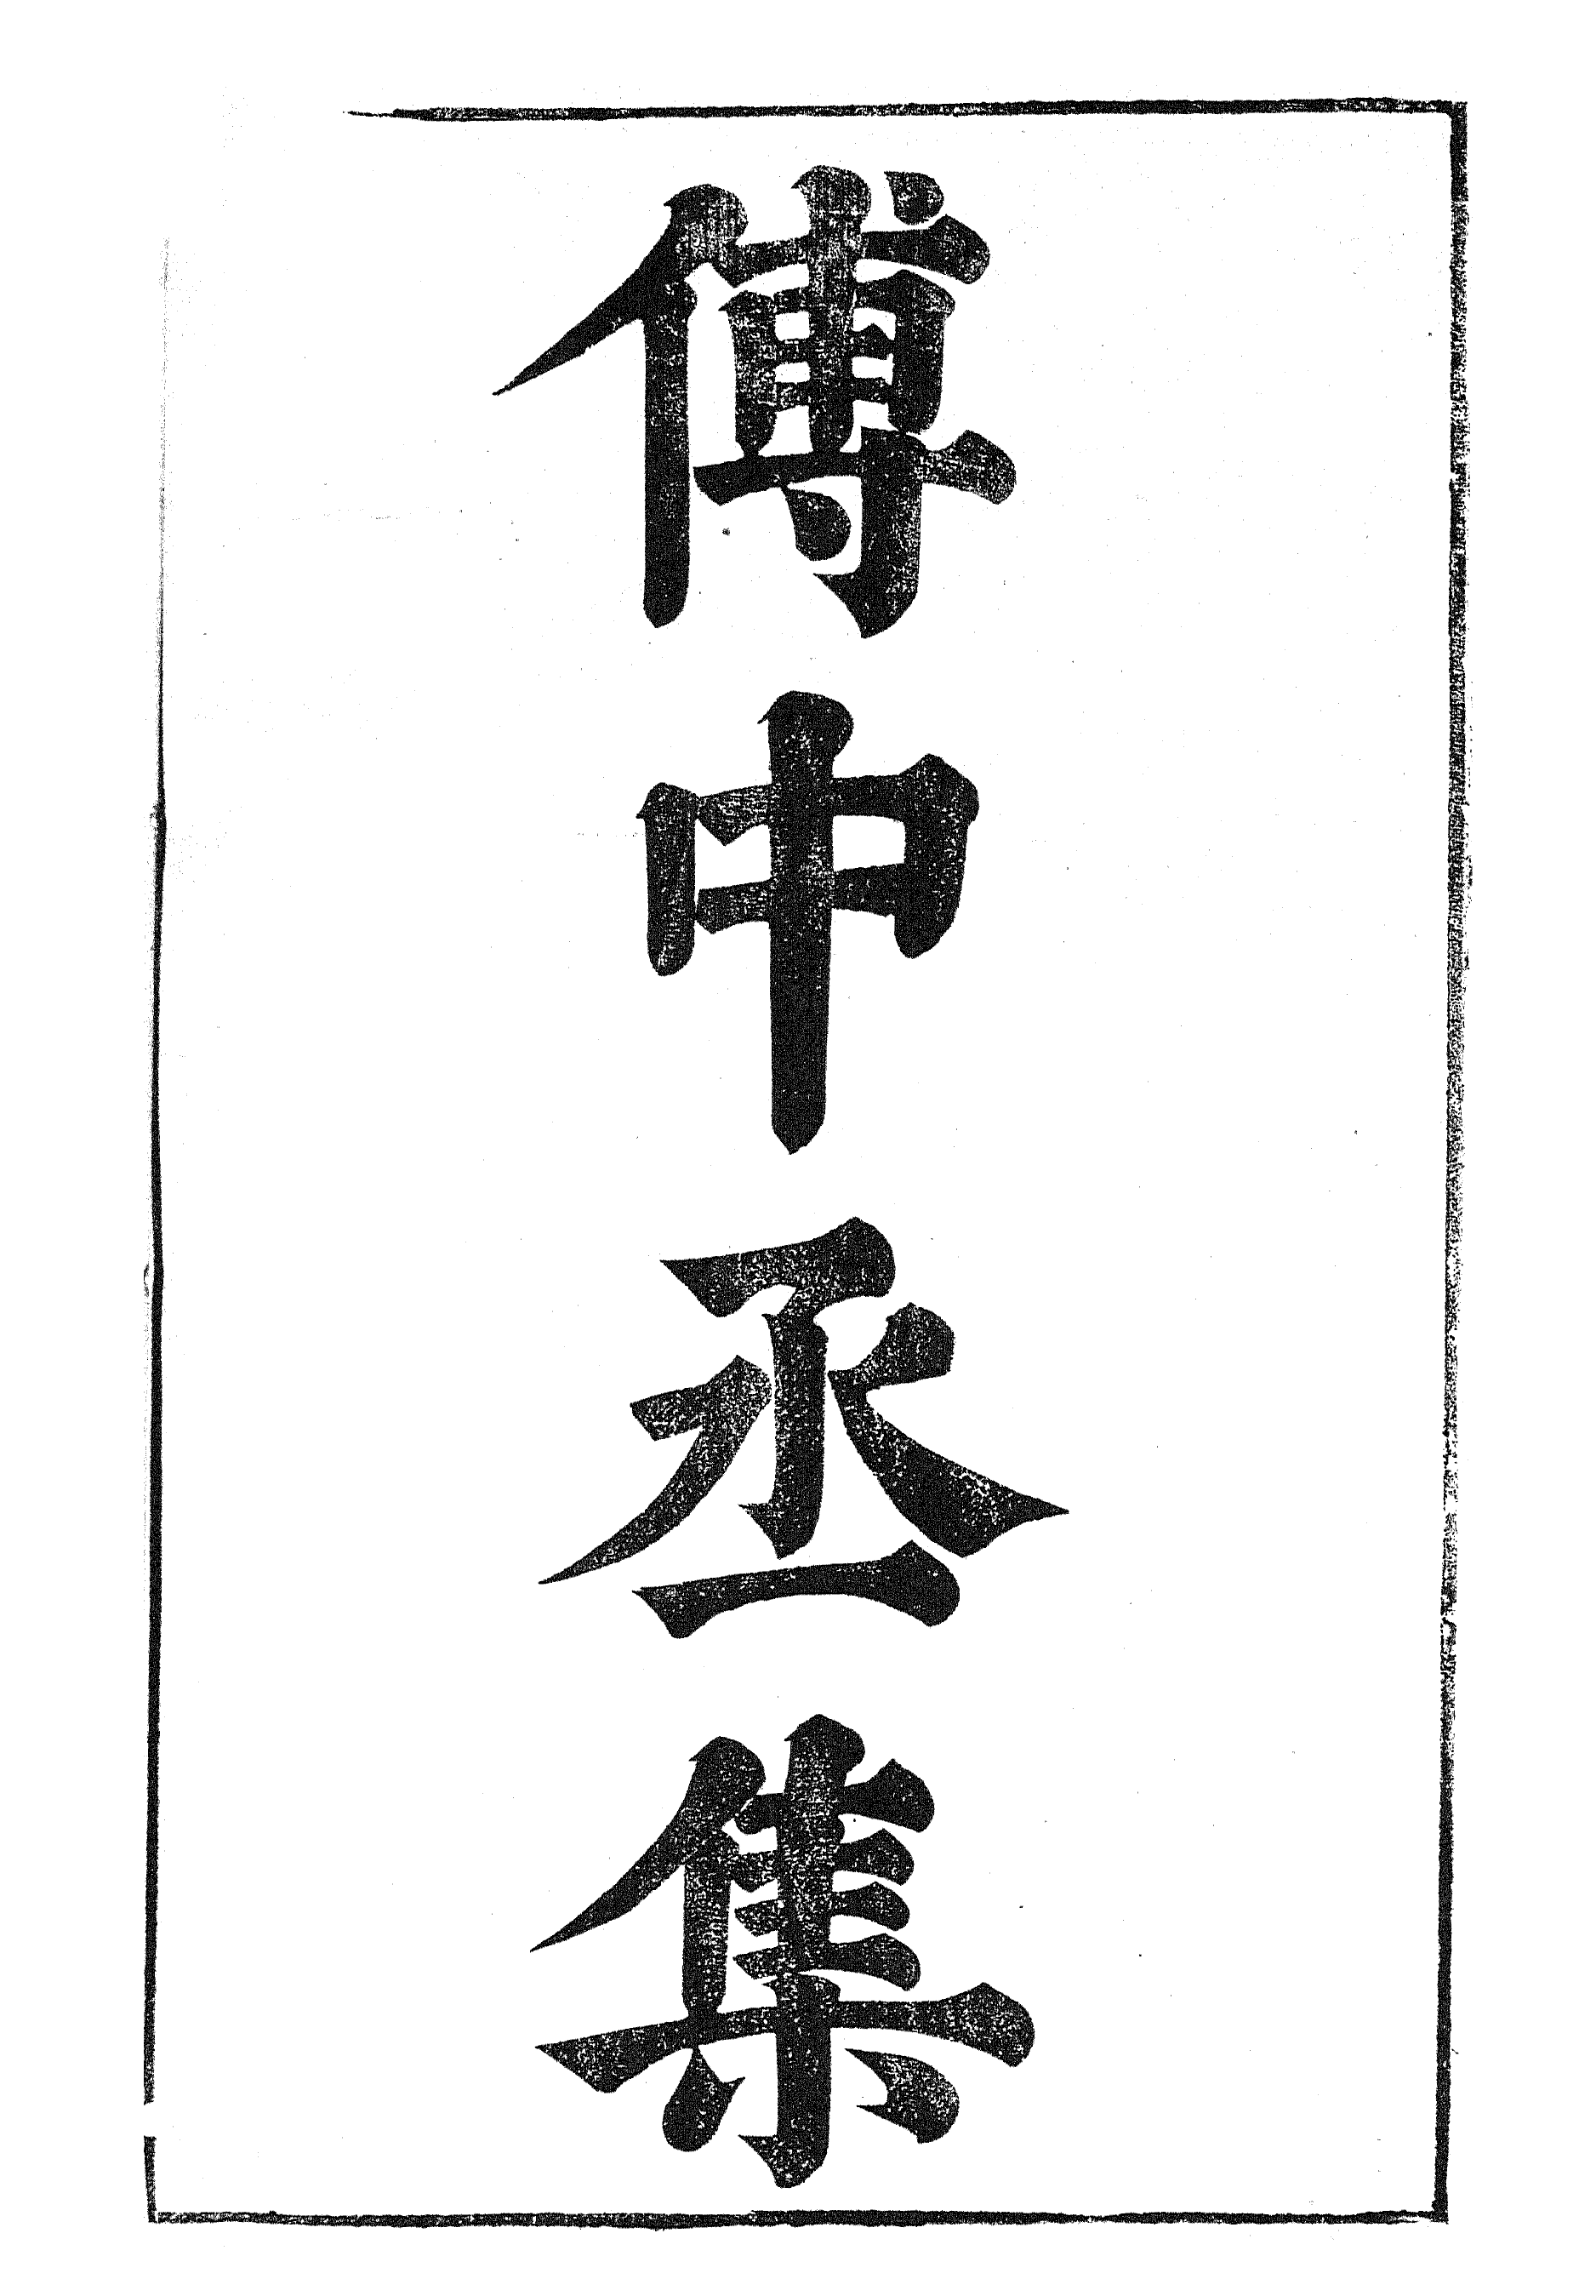 傅中丞集